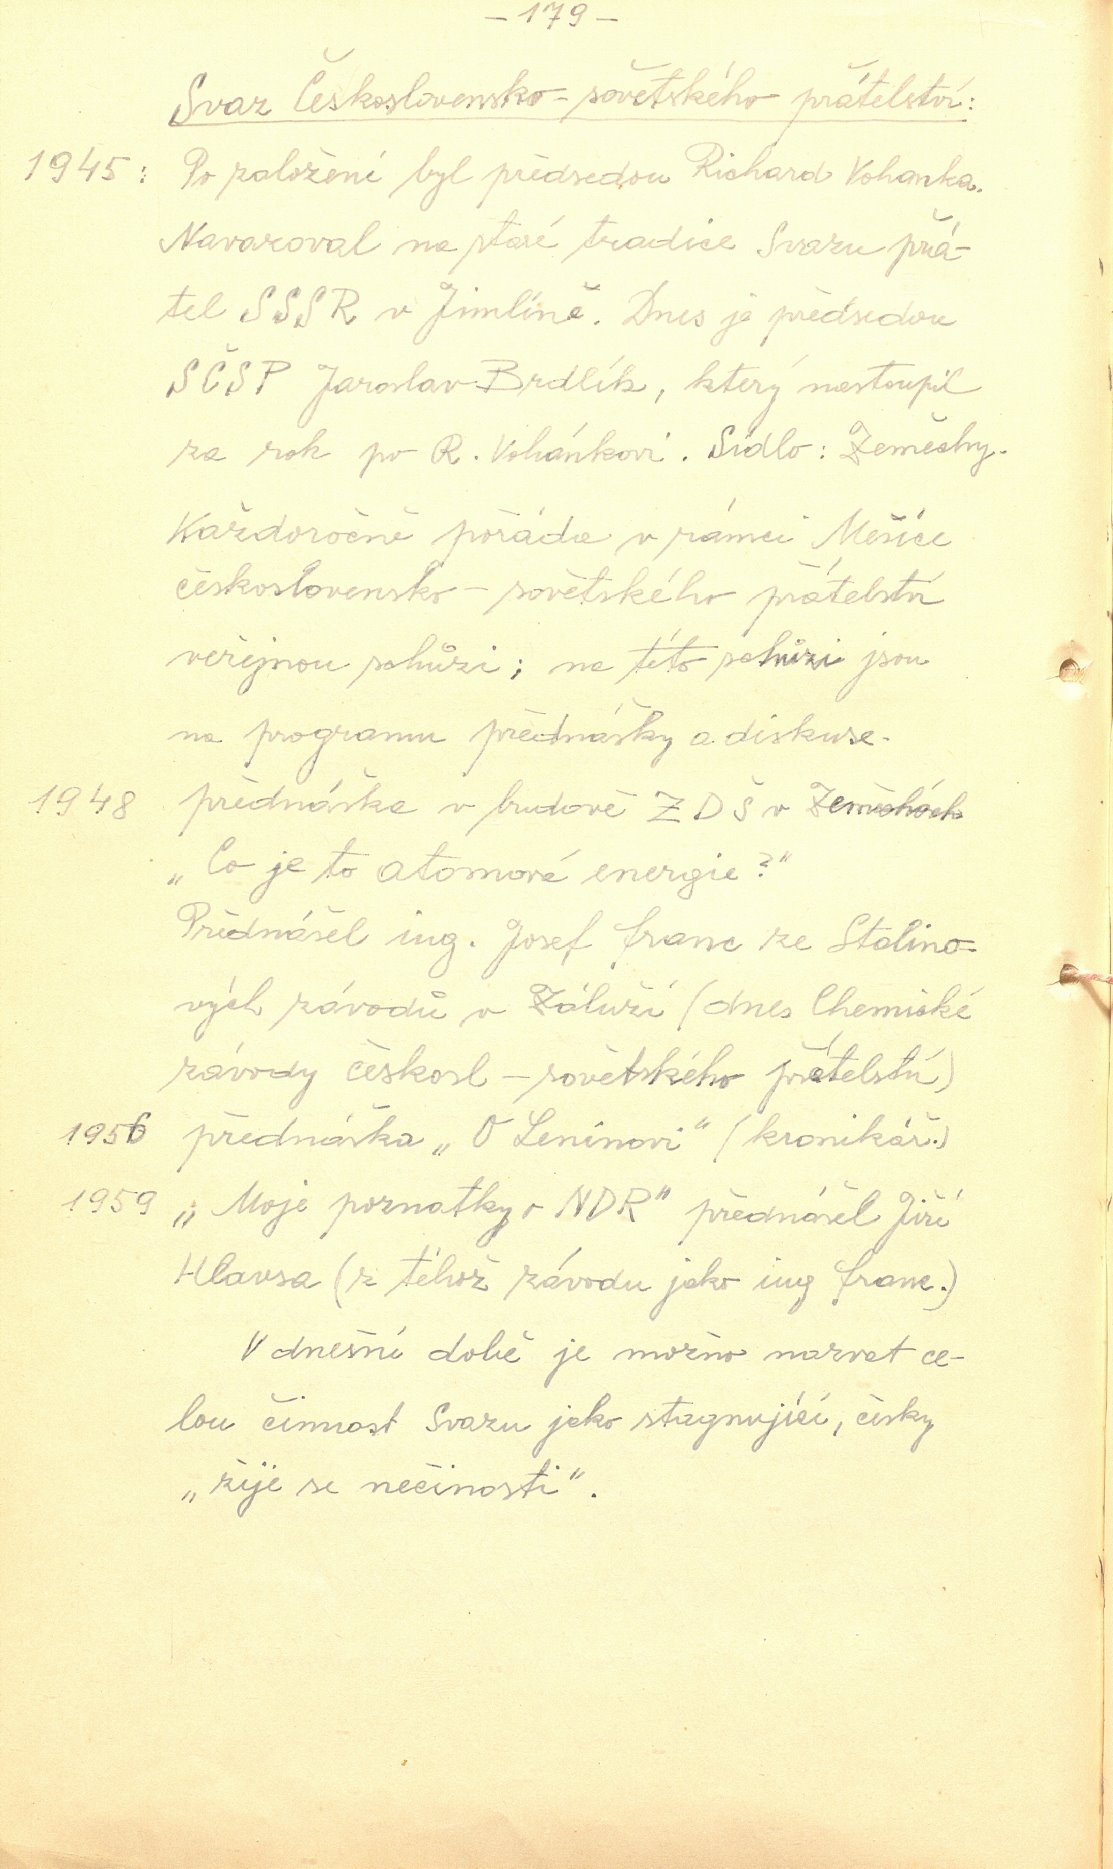 - 179 -
Svaz Československo - sovětského přátelství:
1945: Po založení byl předsedou Richard Vohanka.
Navazoval na staré tradice Svazu přá-
tel SSSR v Jimlíně. Dnes je předsedou
SČSP Jaroslav Brdlík, který nastoupil
za rok po R. Vohánkovi. Sídlo: Zeměchy.
Každoročně pořádá v rámci Měsíce
československo - sovětského přátelství
veřejnou schůzi; na této schůzi jsou
na programu přednášky a diskuse.
1948 přednáška v budově ZDŠ v Zeměchách
„Co je to atomová energie?"
Přednášel ing. Josef Franc ze Stalino-
vých závodů v Záluží (dnes Chemické
závody českosl - sovětského přátelství)
1956 přednáška „O Leninovi" (kronikář.)
1959 „Moje poznatky o NDR" přednášel Jiří
Hlavsa (z téhož závodu jako ing Franc.)
V dnešní době je možno nazvat ce-
lou činnost Svazu jako stagnující, česky
„žije se nečinosti".